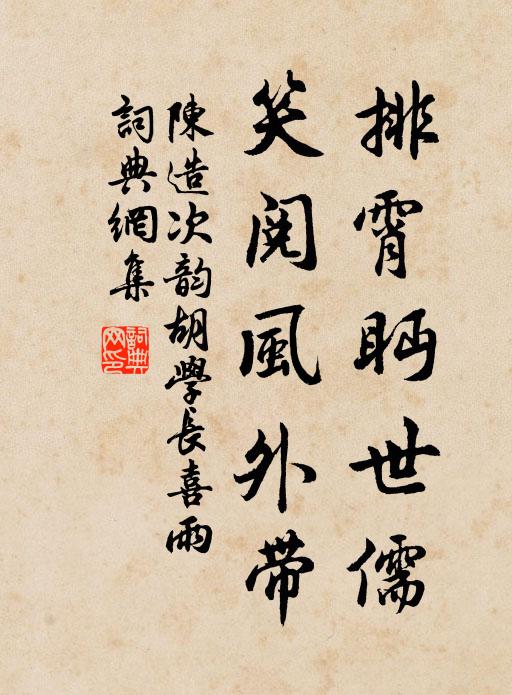 排霄眄世儒
笑閱風外帶
陳造次韵胡學長喜雨
詞典網集
詞典網印